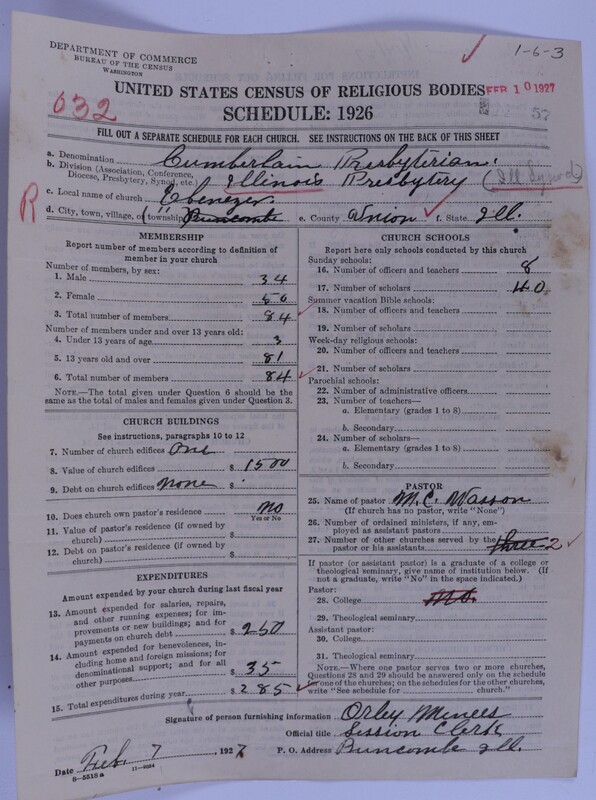 DEPARTMENT OF COMMERCE
BUREAU OF THE CENSUS
WASHINGTON
1-6-3
632
UNITED STATES CENSUS OF RELIGIOUS BODIES
FEB 10 1927
SCHEDULE: 1926
57
FILL OUT A SEPARATE SCHEDULE FOR EACH CHURCH. SEE INSTRUCTIONS ON THE BACK OF THIS SHEET
a. Denomination Cumberlain Presbyterian
b. Division (Association, Conference, Diocese, Presbytery, Synod, etc.) Illinois Presbytery (Ill Synod)
R
c. Local name of church Ebenezer
d. City, town, village, or (township) Buncombe e. County Union f. State Ill.
MEMBERSHIP
Report number of members according to definition of
member in your church
Number of members, by sex:
1. Male 34
2. Female 50
3. Total number of members 84
Number of members under and over 13 years old:
4. Under 13 years of age 3
5. 13 years old and over 81
6. Total number of members 84
NOTE.—The total given under Question 6 should be
same as the total of males and females given under Question 3.
CHURCH BUILDINGS
See instructions, paragraphs 10 to 12
7. Number of church edifices One
8. Value of church edifices $ 1500
9. Debt on church edifices None $
10. Does church own pastor's residence No
Yes or No
11. Value of pastor's residence (if owned by
church) $
12. Debt on pastor's residence (if owned by
church) $
EXPENDITURES
Amount expended by your church during last fiscal year
13. Amount expended for salaries, repairs,
and other running expenses; for im-
provements or new buildings; and for
payments on church debt $ 250
14. Amount expended for benevolences, in-
cluding home and foreign missions; for
denominational support; and for all
other purposes $ 35
15. Total expenditures during year $ 285
CHURCH SCHOOLS
Report here only schools conducted by this church
Sunday schools:
16. Number of officers and teachers 8
17. Number of scholars 40
Summer vacation Bible schools:
18. Number of officers and teachers
19. Number of scholars
Week-day religious schools:
20. Number of officers and teachers
21. Number of scholars
Parochial schools:
22. Number of administrative officers
23. Number of teachers—
a. Elementary (grades 1 to 8)
b. Secondary
24. Number of scholars—
a. Elementary (grades 1 to 8)
b. Secondary
PASTOR
25. Name of pastor M. C. Wasson
(If church has no pastor, write "None")
26. Number of ordained ministers, if any, em-
ployed as assistant pastors
27. Number of other churches served by the
pastor or his assistants three 2
If pastor (or assistant pastor) is a graduate of a college or
theological seminary, give name of institution below. (If
not a graduate, write "No" in the space indicated.)
Pastor:
28. College No.
29. Theological seminary
Assistant pastor:
30. College
31. Theological seminary
NOTE.—Where one pastor serves two or more churches,
Questions 28 and 29 should be answered only on the schedule
for one of the churches; on the schedules for the other churches,
write "See schedule for church."
Signature of person furnishing information Orley Minees
Official title Session Clerk
Date Feb. 7, 1927 P. O. Address Buncombe Ill.
8-5518 a